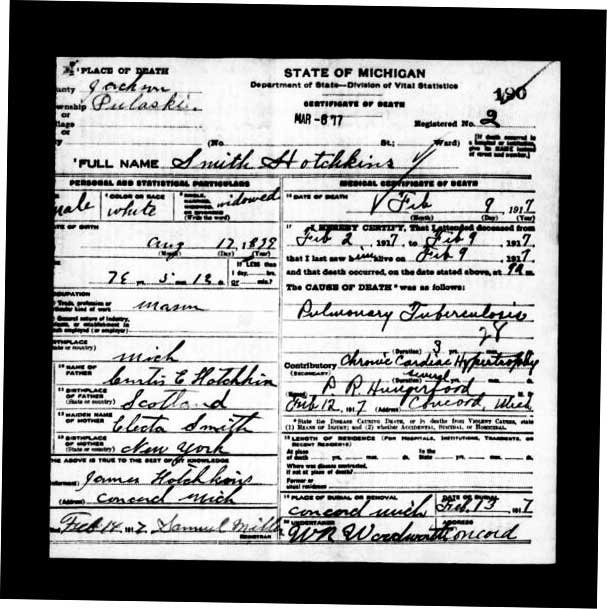 PLACE OF DEATH
STATE OF MICHIGAN
Department of State—Division of Vital Statistics
CERTIFICATE OF DEATH
unty Jackson
wnship Pulaski
llage
or
ty
190
MAR -6 '17
Registered No. 2
(No. St.; Ward)
[If death occurred in a hospital or institution give its NAME instead of street and number.]
FULL NAME Smith Hotchkins
PERSONAL AND STATISTICAL PARTICULARS
male
COLOR OR RACE
white
SINGLE, MARRIED, WIDOWED OR DIVORCED
(Write the word)
widowed
TE OF BIRTH
Aug 17, 18
(Month) (Day) (Year)
If LESS than
1 day, hrs.
or min.?
yrs. 5 mos. ds.
CUPATION
Trade, profession or
rticular kind of work
Mason
General nature of industry,
business, or establishment in
which employed (or employer)
RTHPLACE
(State or country)
Mich
NAME OF FATHER
Curtis E Hotchkin
BIRTHPLACE OF FATHER
(State or country)
Scotland
MAIDEN NAME OF MOTHER
Electa Smith
BIRTHPLACE OF MOTHER
(State or country)
New York
THE ABOVE IS TRUE TO THE BEST OF MY KNOWLEDGE
(Informant) James Hotchkins
(Address) Concord Mich
Feb 14 1917 Samuel Mill
REGISTRAR
MEDICAL CERTIFICATE OF DEATH
DATE OF DEATH
Feb 9 1917
(Month) (Day) (Year)
I HEREBY CERTIFY, That I attended deceased from
Feb 2, 1917, to Feb 9, 1917,
that I last saw him alive on Feb 9, 1917,
and that death occurred, on the date stated above, at m.
The CAUSE OF DEATH* was as follows:
Pulmonary Tuberculosis
28
(Duration) 3 yrs. mos. ds.
Contributory Chronic Cardiac Hypertrophy
(SECONDARY)
several
(Duration) yrs. mos. ds.
(Signed) P. R. Hungerford
Feb 12, 1917 (Address) Concord, Mich
*State the DISEASE CAUSING DEATH, or in deaths from VIOLENT CAUSES, state (1) MEANS OF INJURY; and (2) whether ACCIDENTAL, SUICIDAL, or HOMICIDAL.
LENGTH OF RESIDENCE (FOR HOSPITALS, INSTITUTIONS, TRANSIENTS, OR RECENT RESIDENTS)
At place of death yrs. mos. ds. In the State yrs. mos. ds.
Where was disease contracted,
if not at place of death?
Former or
usual residence
PLACE OF BURIAL OR REMOVAL
Concord Mich
DATE OF BURIAL
Feb. 13 1917
UNDERTAKER
W R Woodworth
ADDRESS
Concord